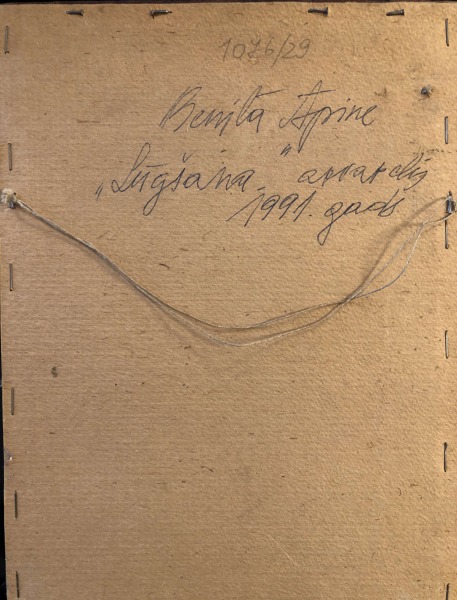 1076/29
Benita Apine
„Lūgšana" akvarelis
1991. gads